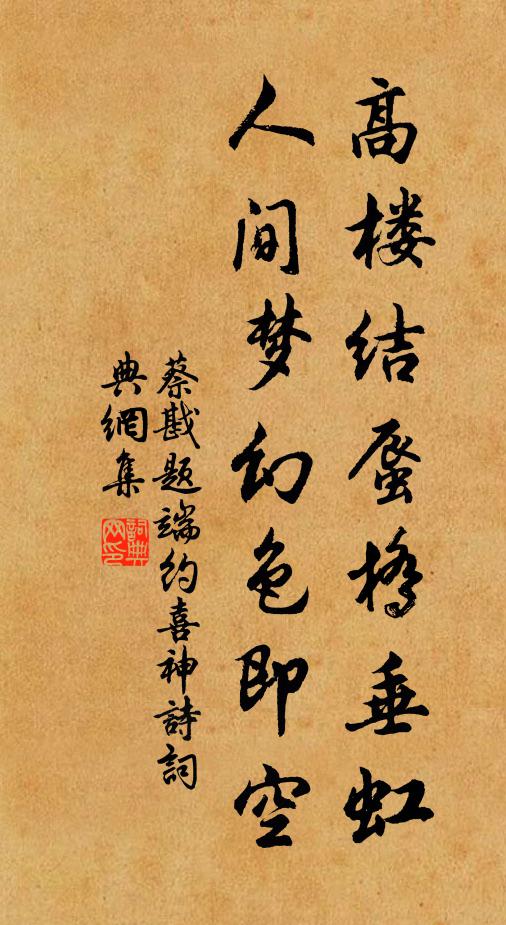 高楼结蜃桥垂虹
人间梦幻色即空
蔡戡题端约喜神詩詞
典網集
詞典网印